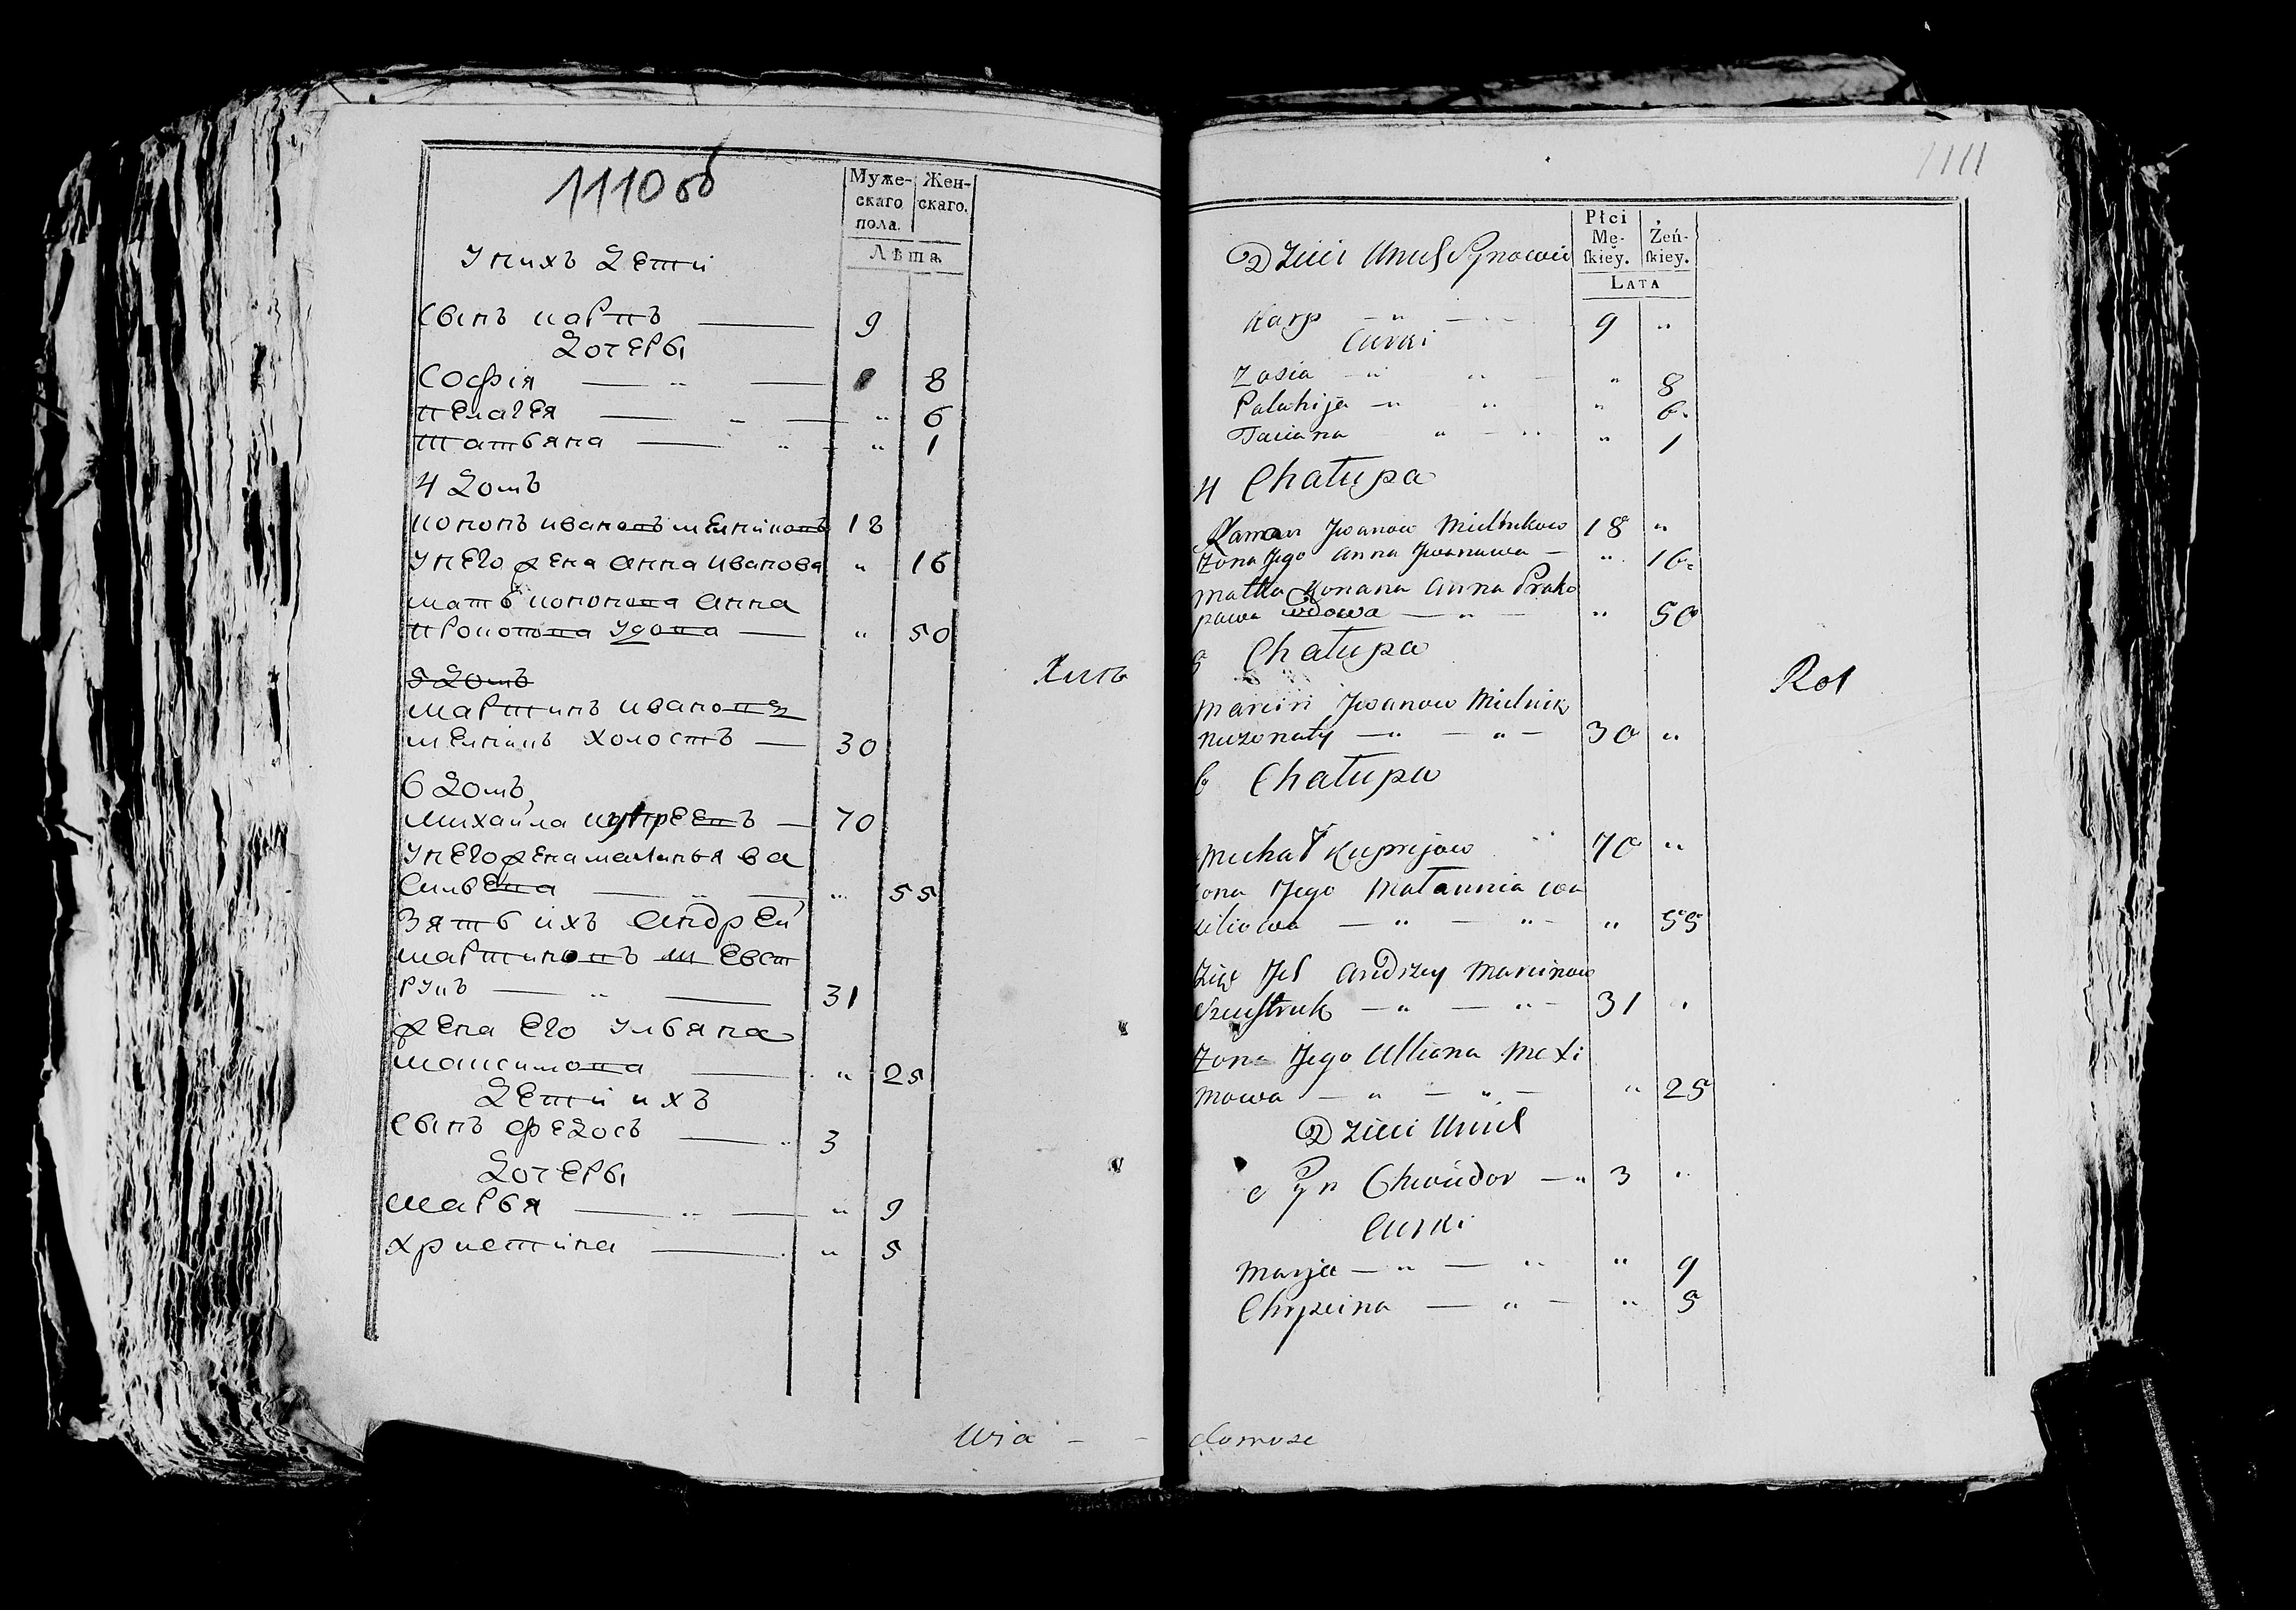 1110 об
Муже-
скаго
пола.
Жен-
скаго.
Лѣта
У нихъ дети
сынъ карпъ 9
дочеры
Софія " 8
пелагея " " 6
татьяна " " 1
4 домъ
кононъ ивановъ мелниковъ 18
У него жена анна иванова " 16
мать кононова анна
прокопова удова " 50
5 домъ
мартинъ ивановъ
мелникъ холостъ 30
6 домъ
михайла купреевъ 70
У него жена маланья ва
силвева " " 55
зять ихъ андрей
мартиновъ шевст
рукъ " 31
жена его ульяна
максимова " 25
дети ихъ
сынъ федосъ " 3
дочеры
марья " " 9
христина " 5
Wia - -
1111
Płci
Mę-
skiey.
Żeń-
skiey.
LATA
Dzieci Unich Synowie
Karp " 9 "
Curki
Zosia " " " 8
Palahija " " " 6
Taciana " " " 1
4 Chałupa
Kaman Jwanow Mielnikow 18 "
Zona Jego Anna Jwanowa " 16
Matka Konana Anna Prako
pawa wdowa " " 50
5 Chałupa
Marcin Jwanow Mielnik
niezonaty " " 30 "
6 Chałupa
Michał Kuprijow " 70 "
zona Jego Małannia wa
siliowa " " " 55
Zięć Ich Andrzey Marcinow
Szewstruk " " 31 "
Zona Jego Ulliana Mexi
mowa " " " 25
Dzieci Unich
Syn Chwiedor " 3 "
Curki
Marja " " " 9
Chryscina " " 5
domosc